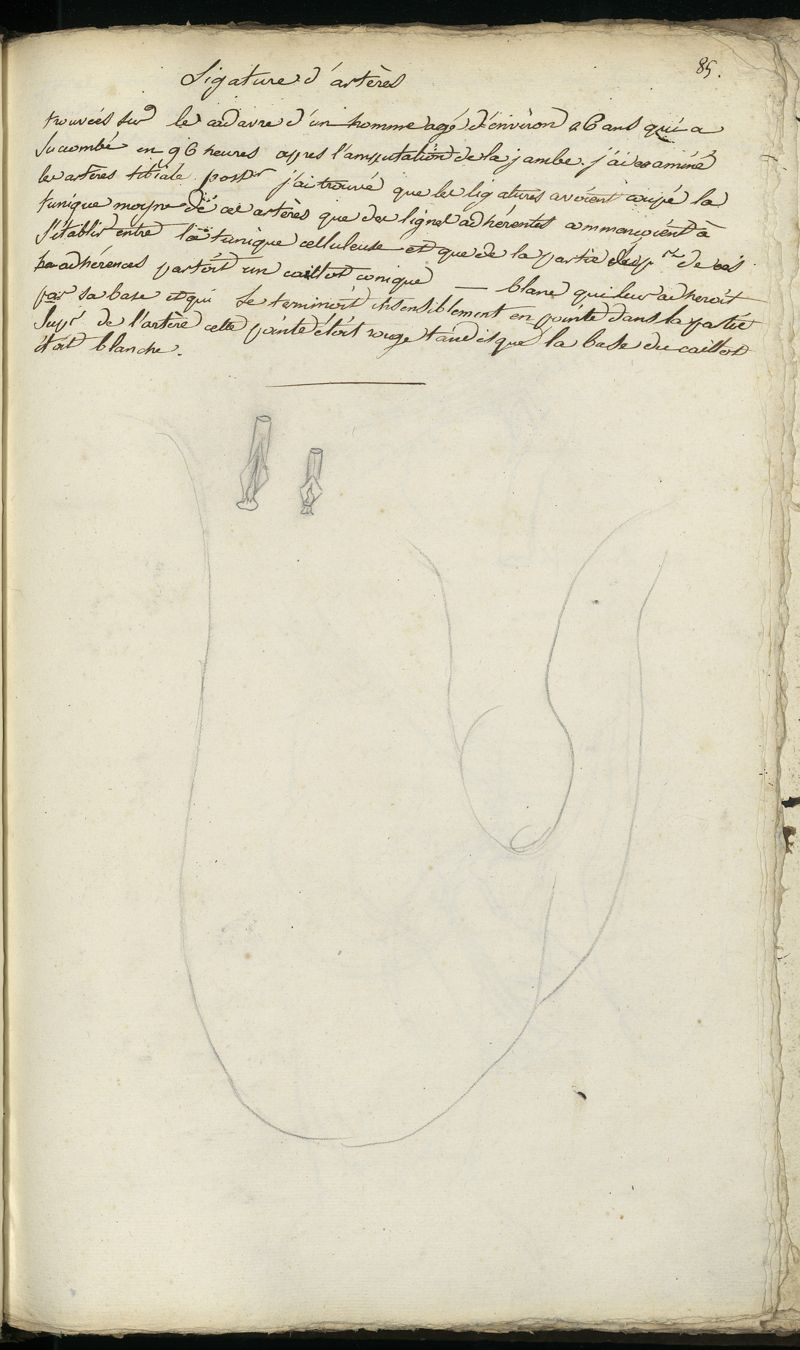 85.
Ligature d'artères
trouvées sur le cadavre d'un homme agé d'environ 26 ans qui a
succombé en 96 heures apres l'amputation de la jambe. j'ai examiné
les artères tibiale postr j'ai trouvé que les ligatures avoient coupé la
tunique moyne de ces artères que des lignes adhérentes commançoient à
s'établir entre la tunique celluleuse et que de la partie supre de ces
adhérences partoit un caillot conique — blanc qui leur adheroit
par sa base et qui se terminoit insensiblement en pointe dans la partie
supr de l'artère cette pointe étoit rouge tandisque la base du caillot
étoit blanche.